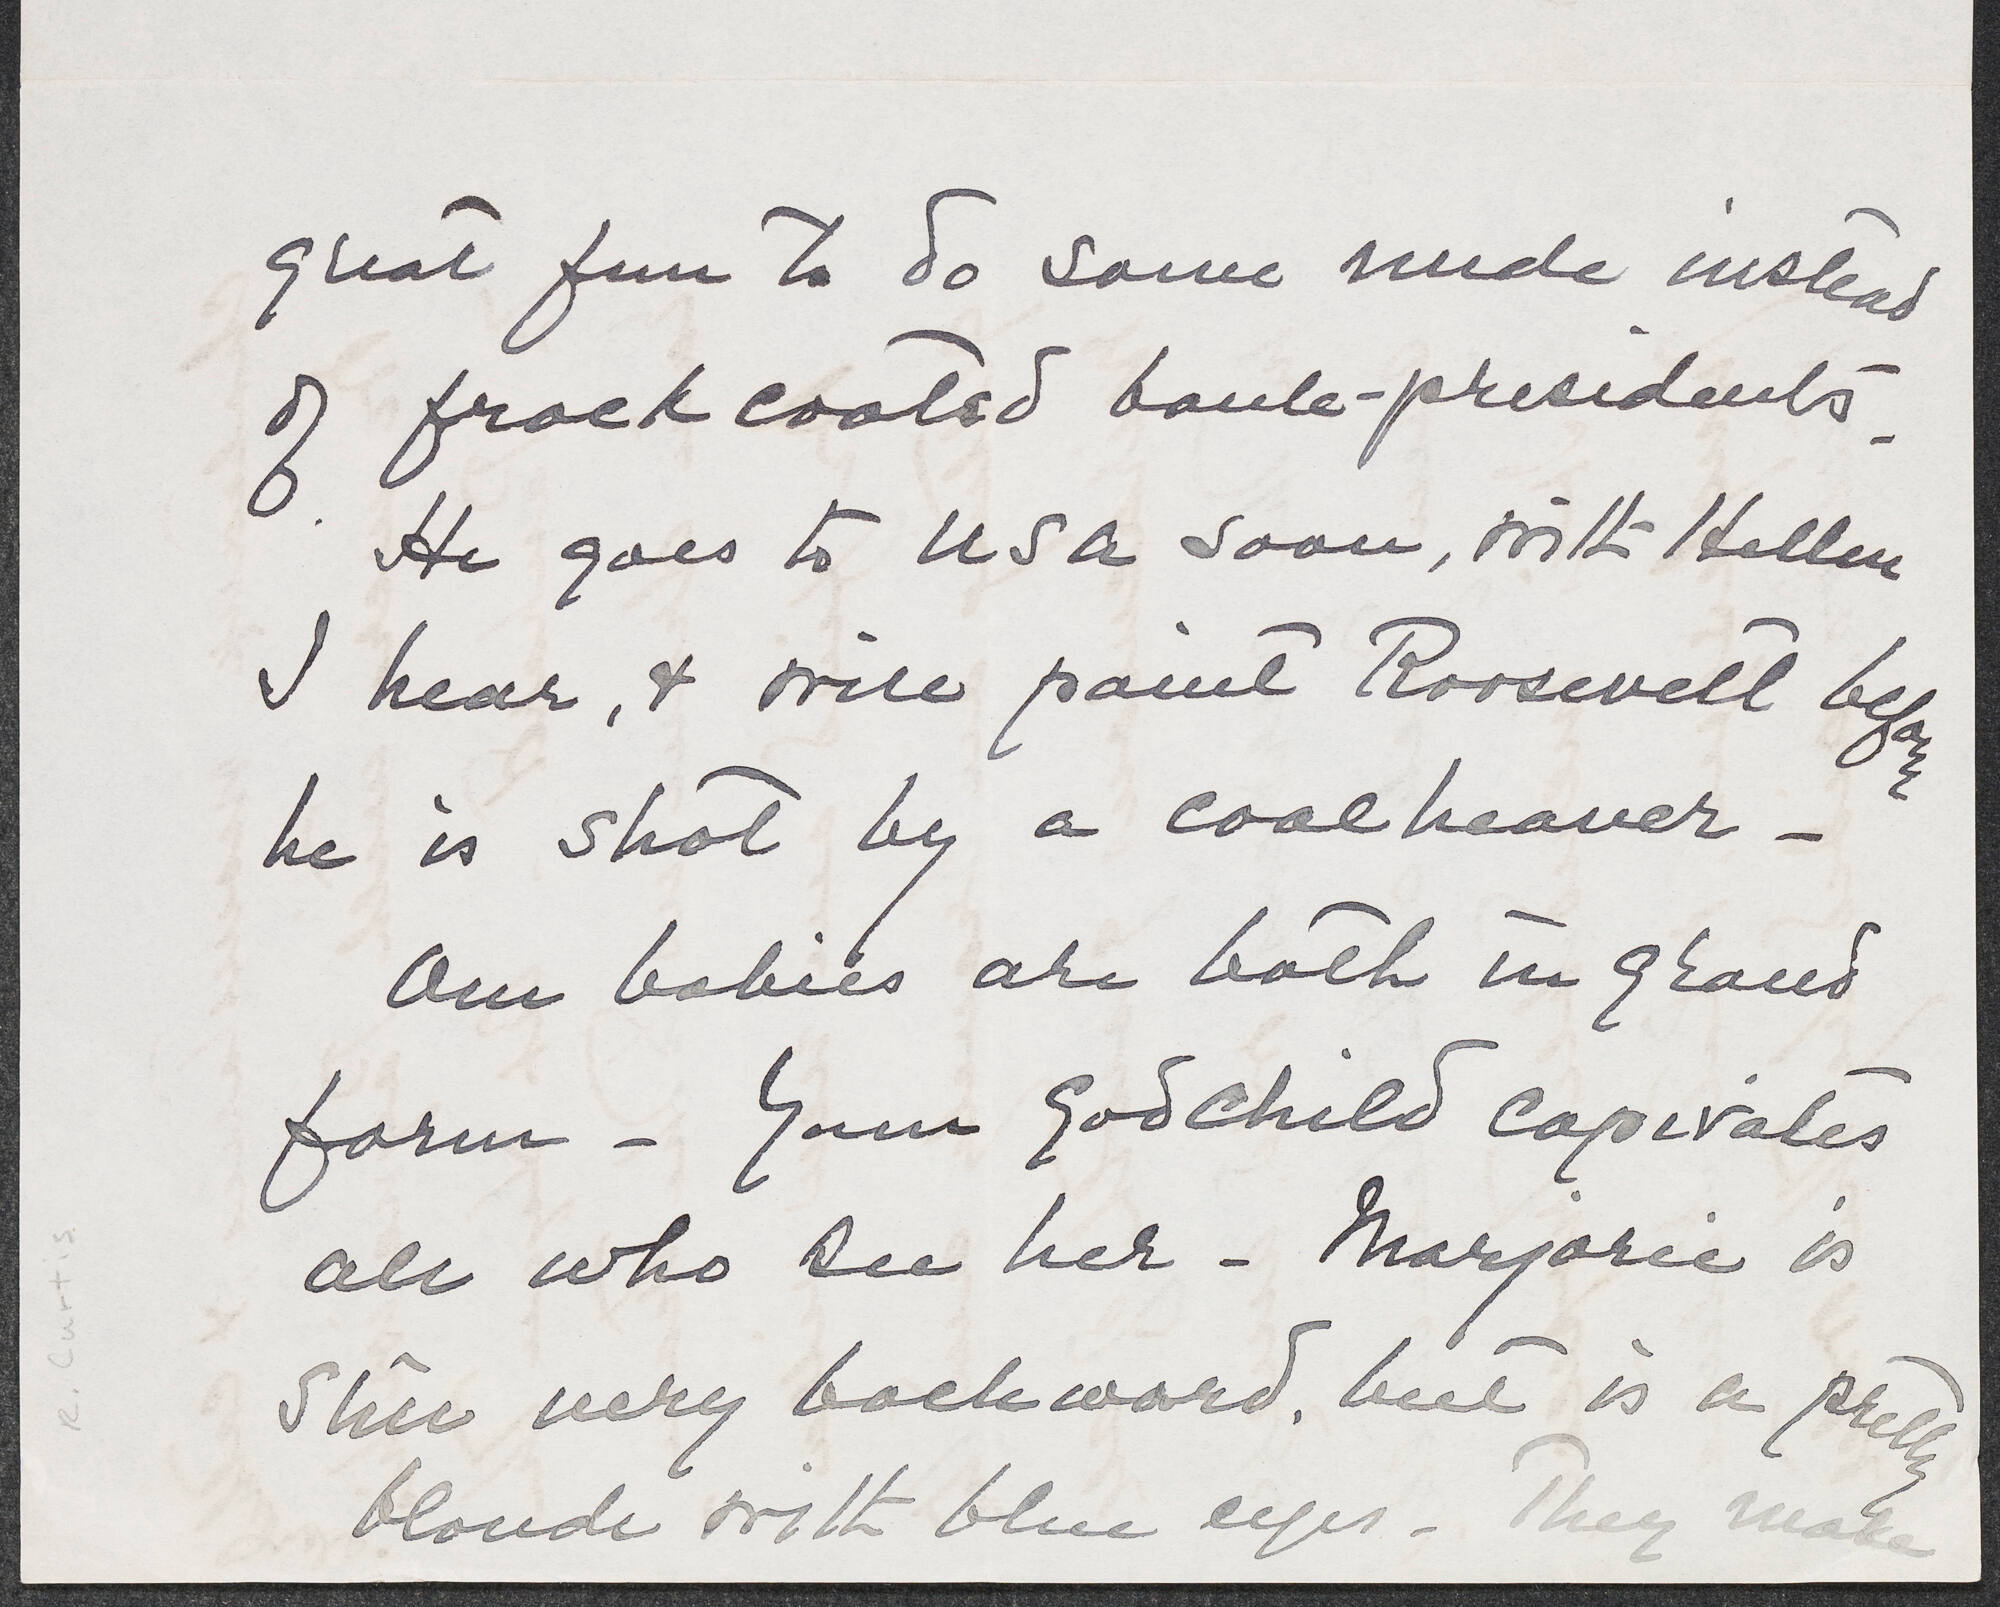 great fun to do some nude instead
of frock coated bank-presidents.
He goes to USA soon, with Helleu
I hear, & will paint Roosevelt before
he is shot by a coalheaver -
Our babies are both in grand
form - Your Godchild capivates
all who see her - Marjorie is
still very backward, but is a pretty
blonde with blue eyes - They make
R. Curtis